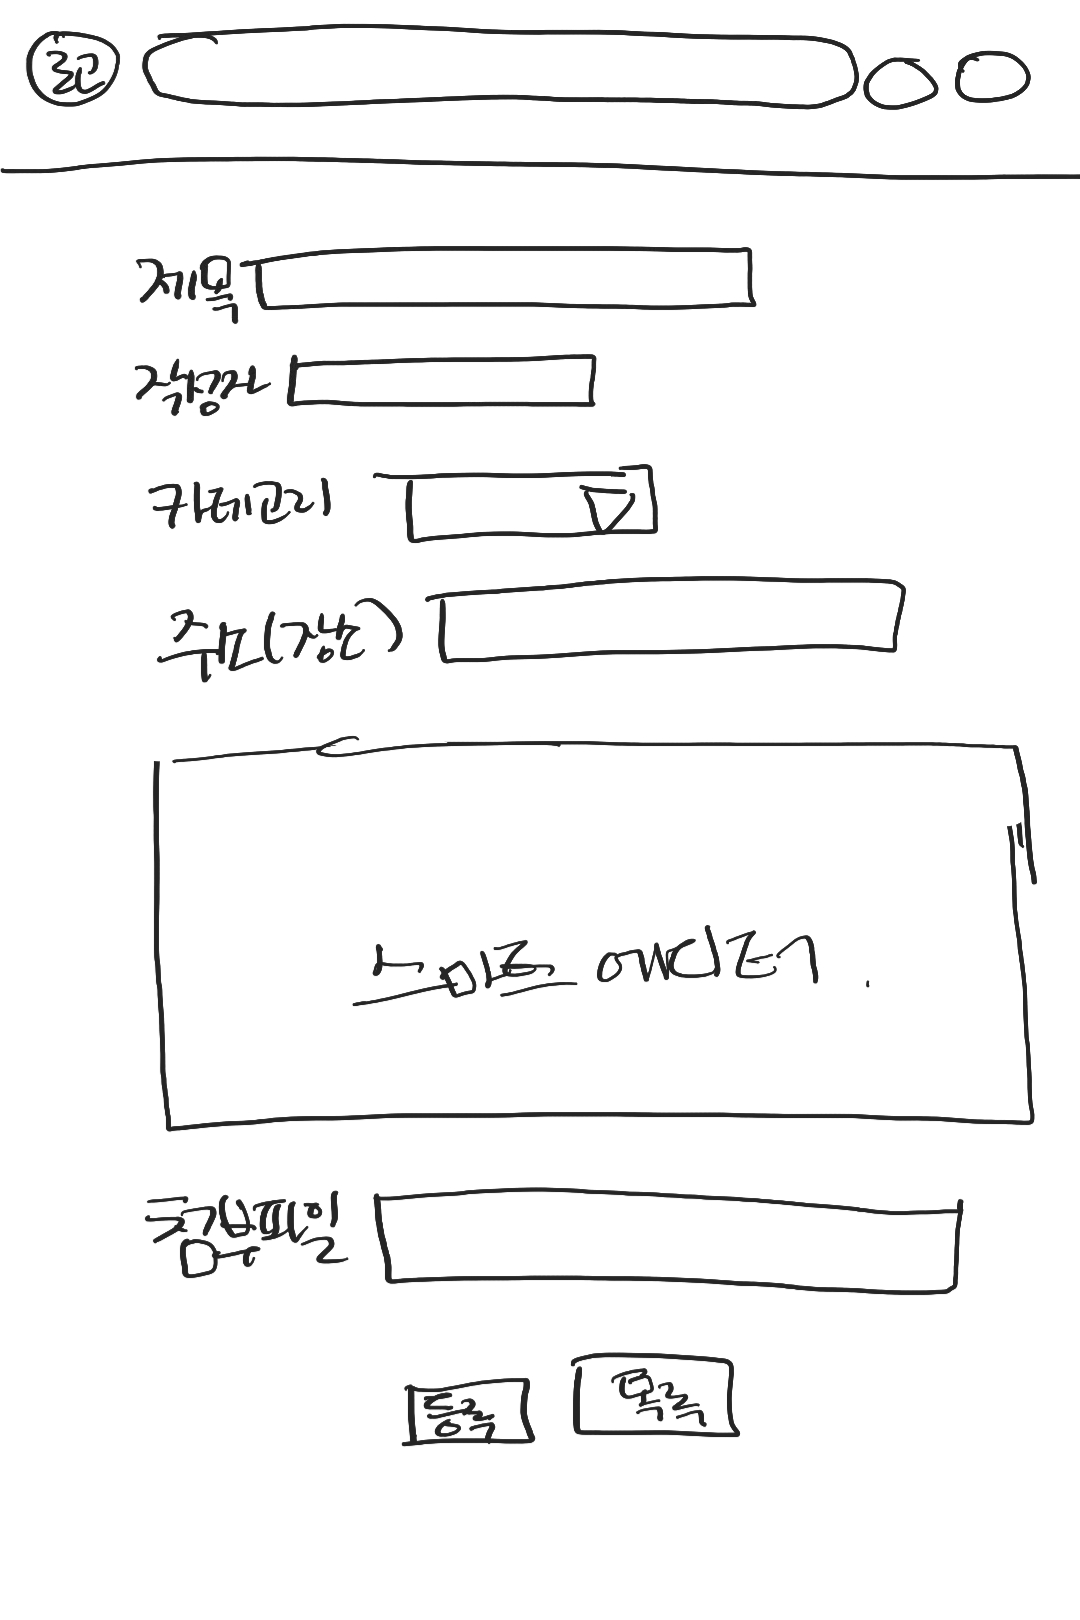 로고
제목
작성자
카테고리
주소(장소)
스마트 에디터
첨부파일
등록
목록